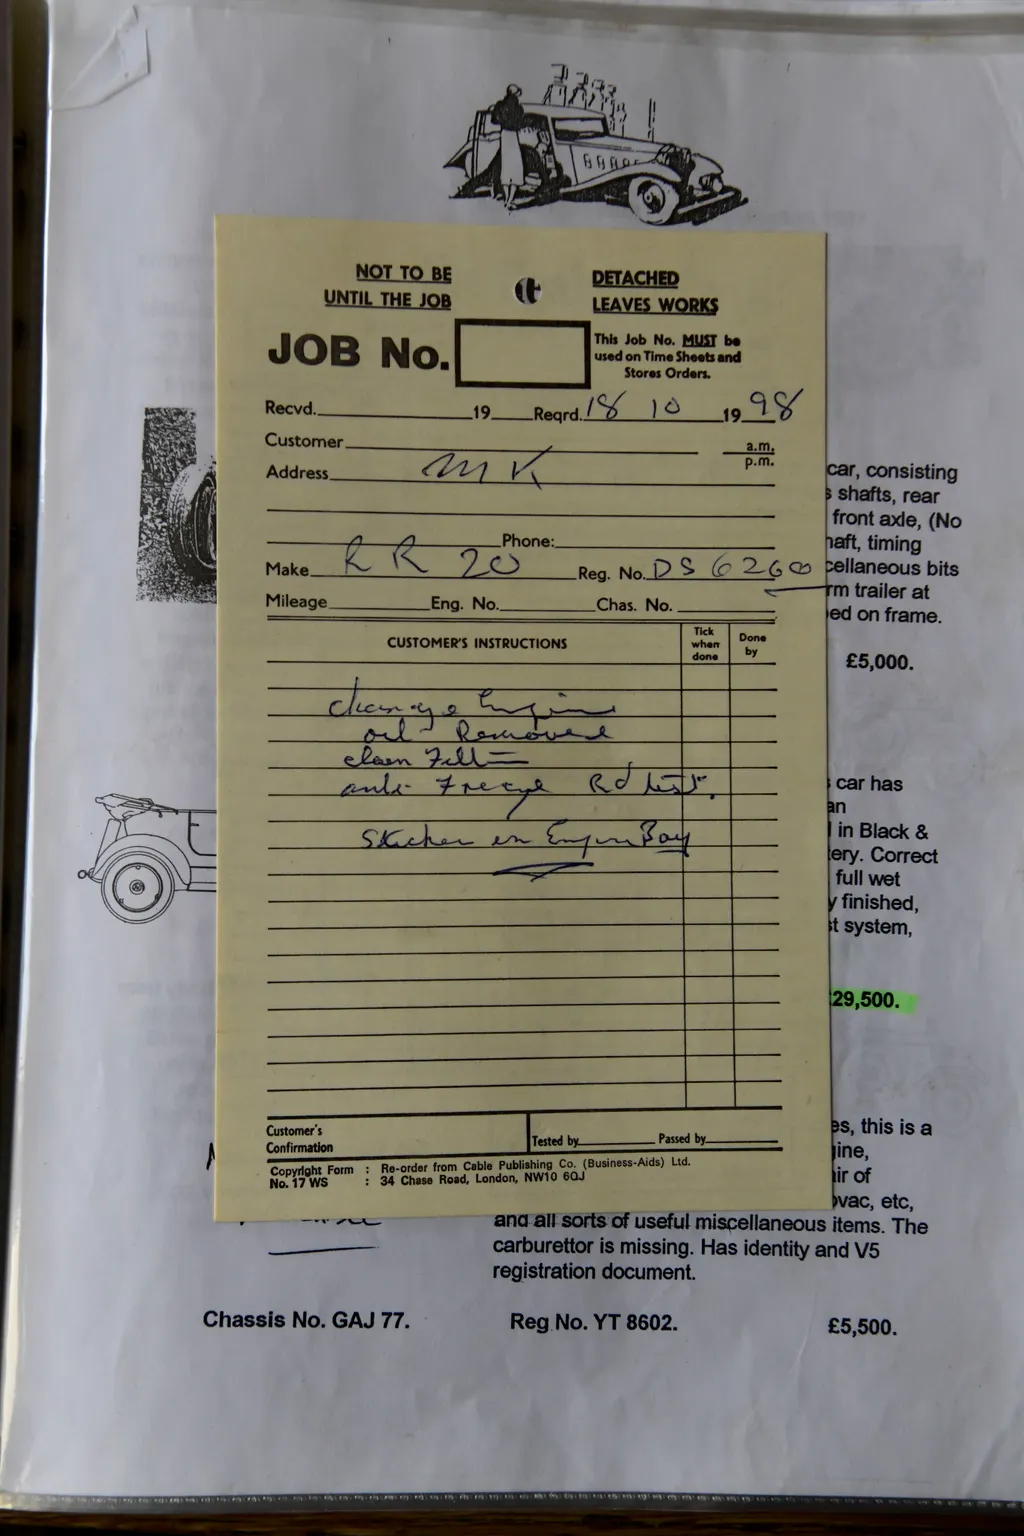 NOT TO BE DETACHED
UNTIL THE JOB LEAVES WORKS
JOB No.
This Job No. MUST be
used on Time Sheets and
Stores Orders.
Recvd. 19 Reqrd. 18 10 19 98
Customer a.m.
p.m.
Address MK
Phone:
Make RR 20 Reg. No. DS 6260
Mileage Eng. No. Chas. No.
CUSTOMER'S INSTRUCTIONS
Tick when done
Done by
change Engine
oil Removed
clean Filter
anti-Freeze Rd test.
Sticker in Engine Bay
Customer's
Confirmation
Tested by Passed by
Copyright Form : Re-order from Cable Publishing Co. (Business-Aids) Ltd.
No. 17 WS : 34 Chase Road, London, NW10 6QJ
car, consisting
shafts, rear
front axle, (No
haft, timing
cellaneous bits
rm trailer at
ed on frame.
£5,000.
car has
an
in Black &
ery. Correct
full wet
y finished,
st system,
29,500.
es, this is a
ine,
ir of
ovac, etc,
and all sorts of useful miscellaneous items. The
carburettor is missing. Has identity and V5
registration document.
Chassis No. GAJ 77. Reg No. YT 8602. £5,500.